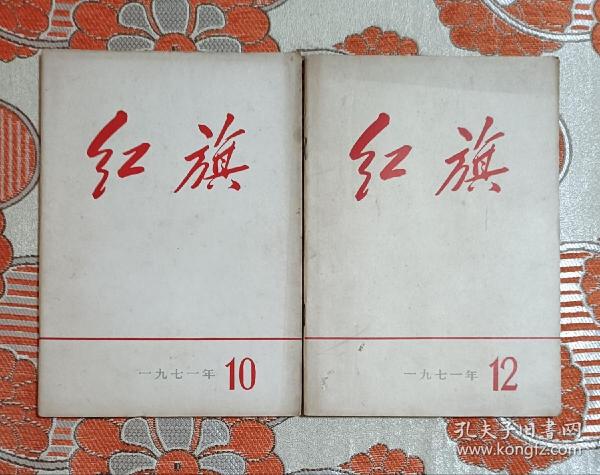 红旗
一九七一年 10
红旗
一九七一年 12
孔夫子旧書网
www.kongfz.com